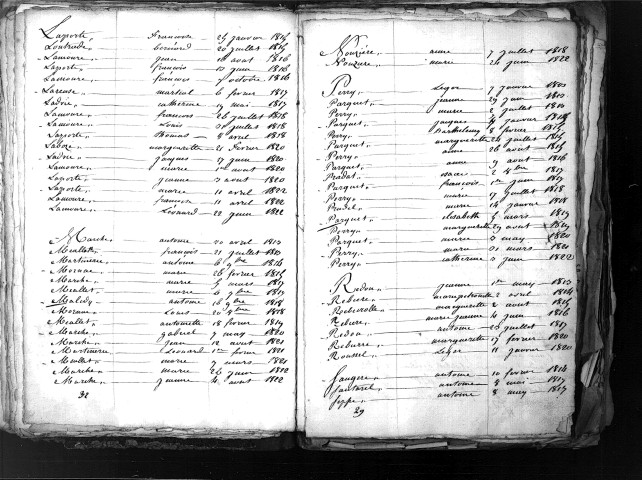 Laporte francoise 29 janvier 1815
bernard 20 juillet 1815
Lamoure jean 16 aout 1816
Laporte françois 13 juin 1816
Lamoure françois 7 octobre 1816
martial 6 fevrier 1817
Ladoire catherine 19 mai 1817
Lamoure francois 26 juillet 1818
Lamoure Louis 31 juillet 1818
Laporte thomas 8 avril 1818
Ladoire marguerette 21 fevrier 1820
Ladoire jacques 17 juin 1820
Lamoure marie 1er aout 1820
Laporte jeanne 7 aout 1820
Laporte marie 11 avril 1822
Lamoure francois 11 avril 1822
Lamoure Léonard 22 juin 1822
Marche antoine 30 avril 1813
Meallet françois 21 juillet 1813
Martiniere antoine 6 9bre 1814
marie 26 fevrier 1815
Marche marie 5 mars 1817
Meallet marie 16 9bre 1817
Maledy antoine 16 9bre 1818
Louis 20 8bre 1818
Meallet antoinette 18 fevrier 1819
Marche gabriel 7 may 1820
Marche jean 12 aout 1821
Martiniere Léonard 1er fevrier 1821
Meallet marie 7 mars 1821
Marche marie 26 juin 1822
Marche jeanne 4 aout 1822
32
Nouziere anne 7 juillet 1818
Nouziere marie 24 juin 1822
Perry Léger 7 janvier 1813
Parquet jeanne 29 juin 1813
Perry marie 2 juillet 1814
Parquet jacques 4 janvier
Perry Barthelemy 8 fevrier 1815
Parquet marguerette 24 juillet 1815
Perry anne 26 aout 1815
Parquet anne 9 aout 1816
Pradel 2 8bre 1817
Parquet françois 1er juin 1817
Perry marie 17 juillet 1818
Pradel marie 14 janvier 1818
Parquet elisabeth 5 mars 1819
Perry marguerette 29 aout 1819
Parquet marie 3 may 1820
Perry marie 31 mars 1821
Perry catherine 3 juin 1822
Redon jeanne 1er may 1813
Rebiere 2 avril 1814
Reberolle marguerette 2 aout 1815
Rebiere marie jeanne 4 juin 1816
Redon antoine 25 juillet 1817
Rebiere marguerette 17 fevrier 1820
Roussel Léger 11 janvier 1820
Saugere antoine 10 fevrier 1814
Sautarel antoine 8 mai 1817
antoine 8 may 1817
29